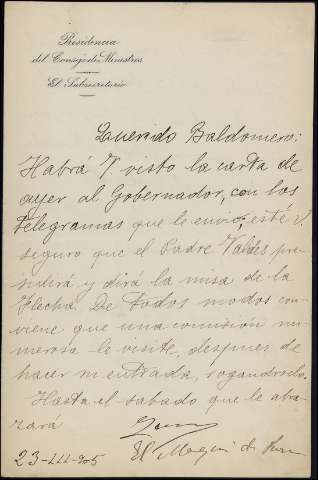 Presidencia
del Consejo de Ministros
El Subsecretario
Querido Baldomero:
Habrá V. visto la carta de
ayer al Gobernador, con los
telegramas que le envio, esté V.
seguro que el Padre Valdés pre
sidirá y dirá la misa de la
Flecha. De todos modos con-
viene que una comisión nu-
merosa le visite, despues de
hacer mi entrada, rogandoselo.
Hasta el sabado que le abra
zará
El Marqués de
23-III-905